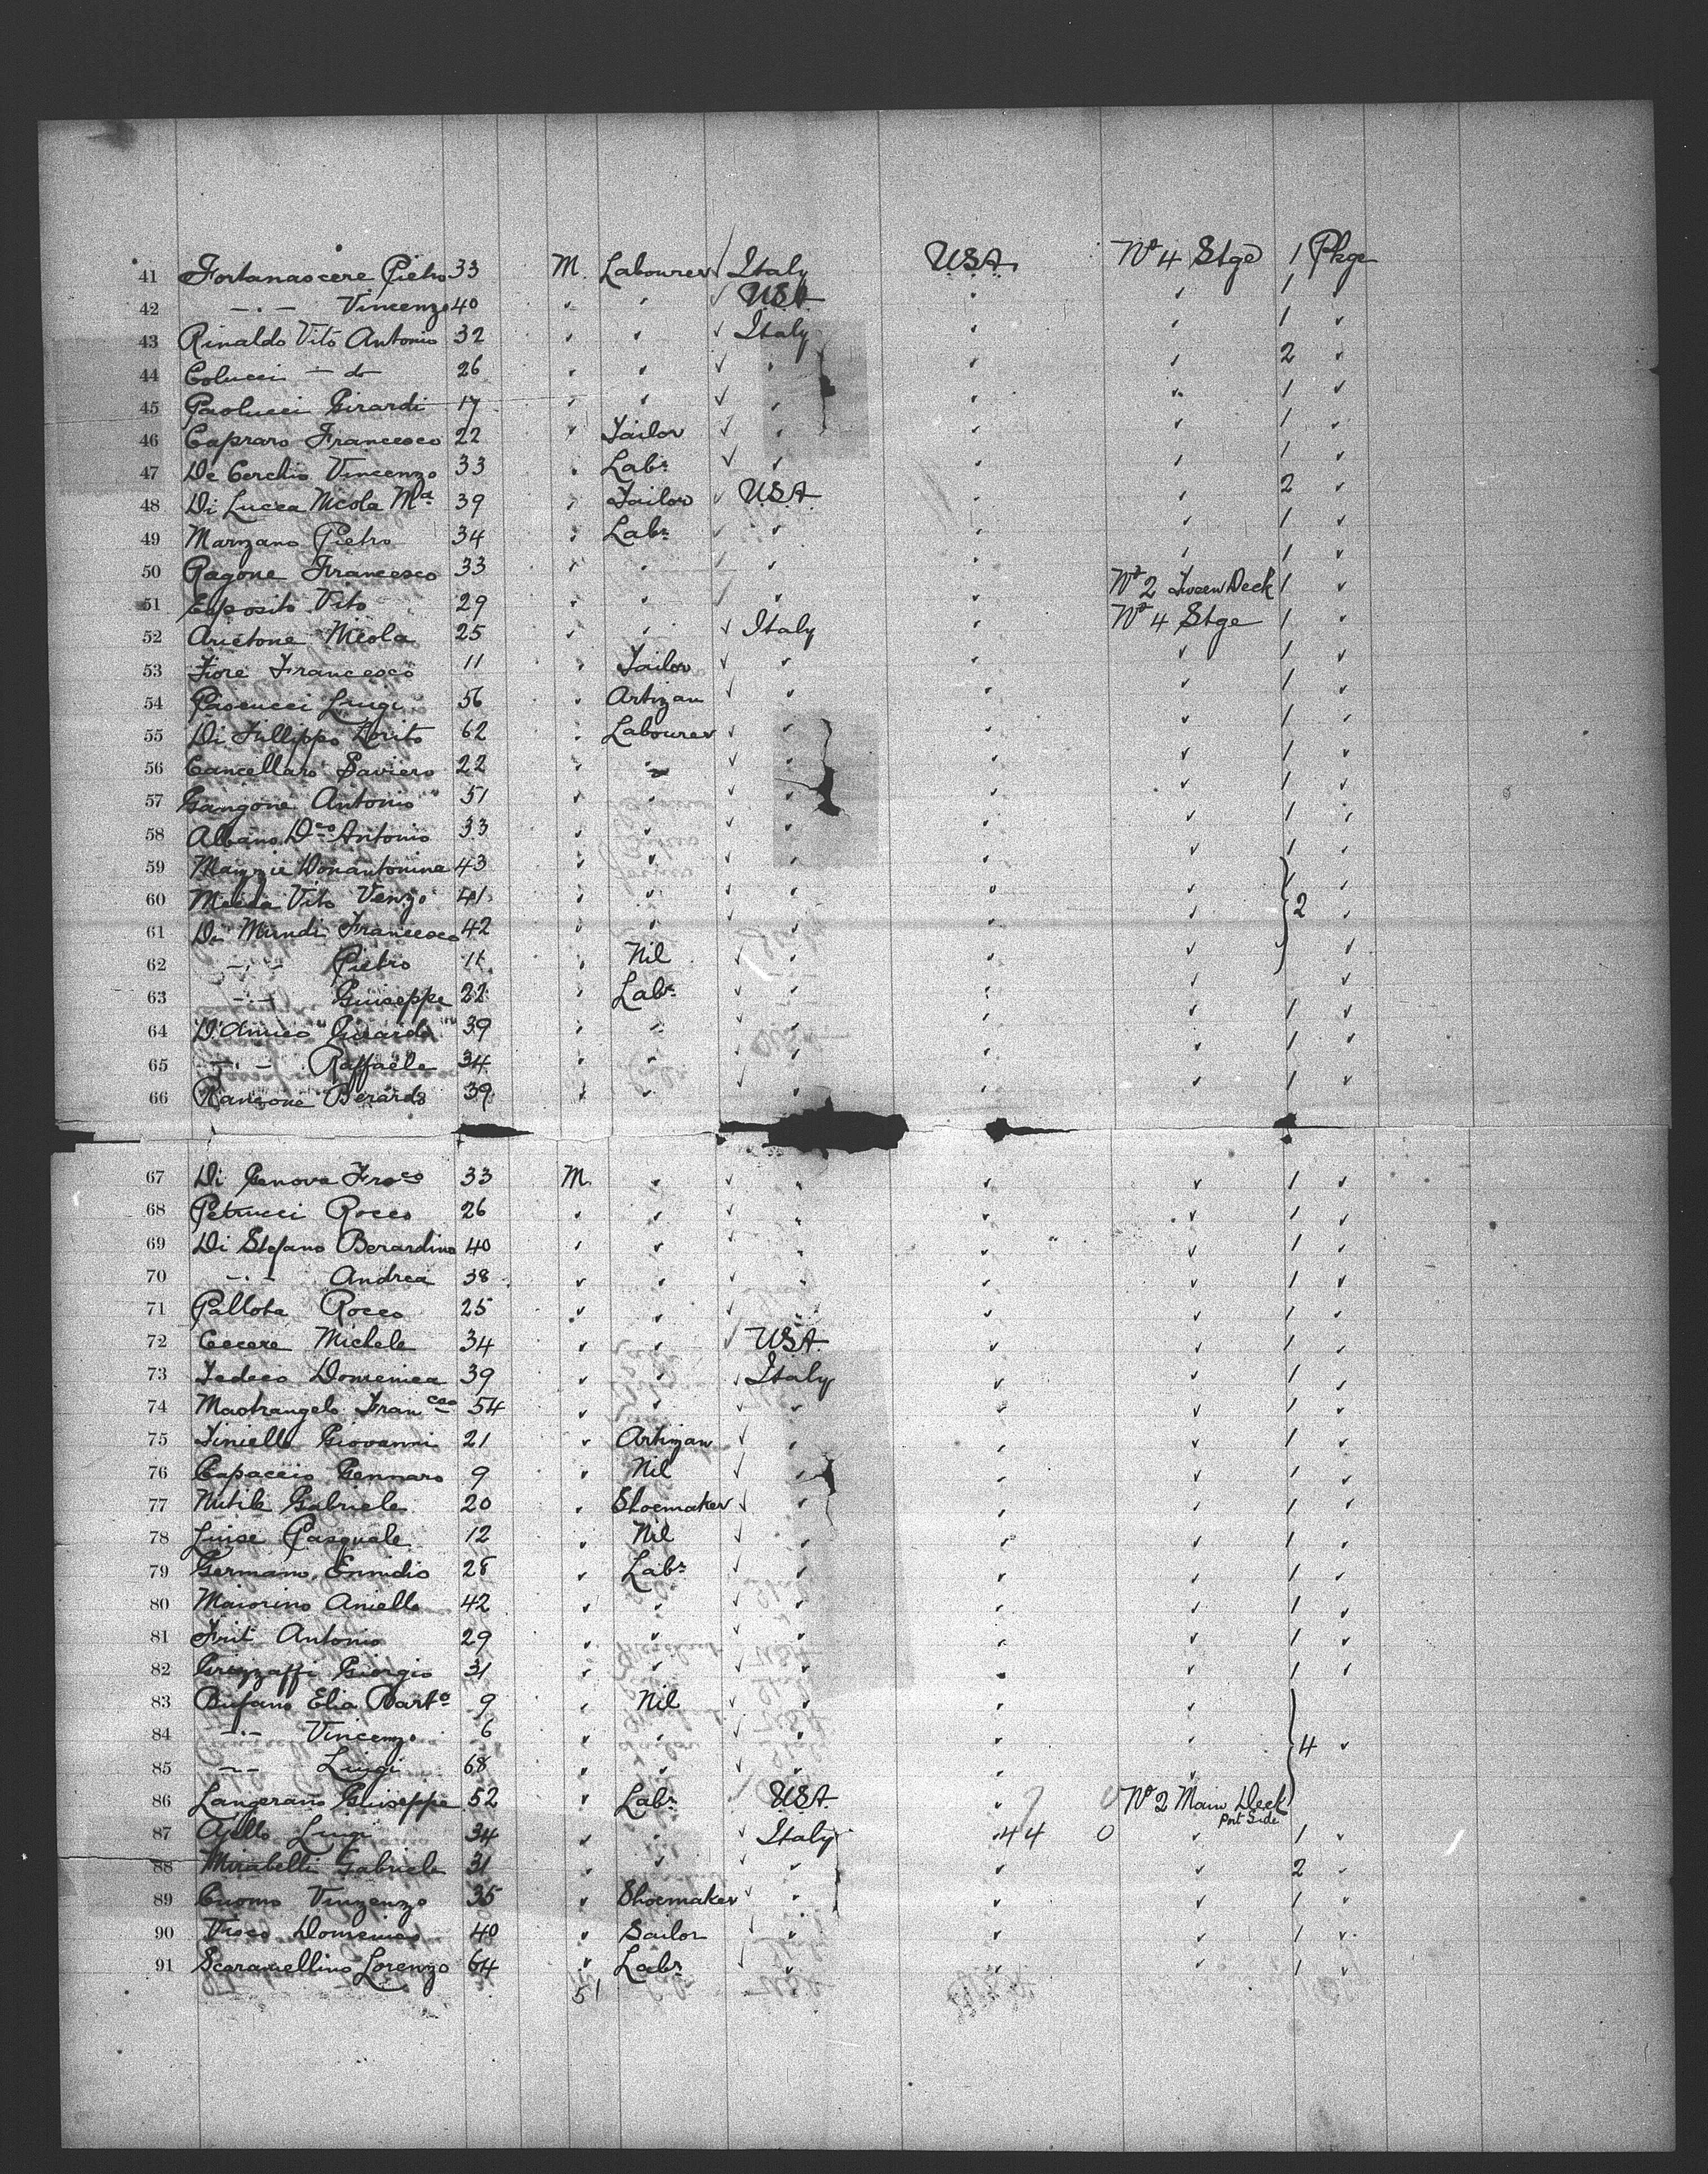 41 Fortanascere Pietro 33 M. Labourer Italy USA. No 4 Stge 1 Pkge
42 -.- Vincenzo 40 " " ✓ USA " " 1 "
43 Rinaldo Vito Antonio 32 " " ✓ Italy " " 1 "
44 Colucci - do - 26 " " ✓ " " " 2 "
45 Paolucci Girardi 17 " " ✓ " " " 1 "
46 Capraro Francesco 22 " Tailor ✓ " " " 1 "
47 De Cerchio Vincenzo 33 " Labr ✓ " " " 1 "
48 Di Lucca Nicola Ma 39 " Tailor ✓ USA " " 2 "
49 Marzano Pietro 34 " Labr ✓ " " " 1 "
50 Ragone Francesco 33 " " ✓ " " " 1 "
51 Esposito Vito 29 " " ✓ " " No 2 Tween Deck 1 "
52 Arietone Nicola 25 " " ✓ Italy " No 4 Stge 1 "
53 Fiore Francesco 11 " Tailor ✓ " " " 1 "
54 Pascucci Luigi 56 " Artizan ✓ " " " 1 "
55 Di Fillippo Donito 62 " Labourer ✓ " " " 1 "
56 Cancellaro Saviero 22 " " ✓ " " " 1 "
57 Gangone Antonio 51 " " ✓ " " " 1 "
58 Albano Dco Antonio 33 " " ✓ " " " 1 "
59 Donantonina 43 " " ✓ " " " 1 "
60 Vito Venzo 41 " " ✓ " " "
61 Di Mundi Francesco 42 " " ✓ " " " 2 "
62 -.- Pietro 11 " Nil ✓ " " "
63 -.- Guiseppe 22 " Labr ✓ " " "
64 D'Amico Girardo 39 " " ✓ " " " 1 "
65 -.- Raffaele 34 " " ✓ " " " 1 "
66 Berardo 39 " " ✓ " " " 1 "
67 Di Genova Fraco 33 M. " ✓ " " " 1 "
68 Petrucci Rocco 26 " " ✓ " " " 1 "
69 Di Stefano Berardino 40 " " ✓ " " " 1 "
70 -.- Andrea 38 " " ✓ " " " 1 "
71 Pallota Rocco 25 " " ✓ " " " 1 "
72 Cecere Michele 34 " " ✓ USA. " " 1 "
73 Tedeco Domenica 39 " " ✓ Italy " " 1 "
74 Mastrangelo Francesco 54 " " ✓ " " " 1 "
75 Tiniello Giovanni 21 " Artizan ✓ " " " 1 "
76 Capaccio Gennaro 9 " Nil ✓ " " " 1 "
77 Nutile Gabriele 20 " Shoemaker ✓ " " " 1 "
78 Luise Pasquale 12 " Nil ✓ " " " 1 "
79 Germano Emidio 28 " Labr ✓ " " " 1 "
80 Maiorino Aniello 42 " " ✓ " " " 1 "
81 Frit Antonio 29 " " ✓ " " " 1 "
82 Grizzaffi Giorgio 31 " " ✓ " " " 1 "
83 Bufano Elia Barto 9 " Nil ✓ " " "
84 -.- Vincenzo 6 " " ✓ " " " 4 "
85 -.- Luigi 68 " " ✓ " " "
86 Langerano Guiseppe 52 " Labr USA. " No 2 Main Deck Port Side
87 Ajello Luigi 34 " " ✓ Italy 44 0 " 1 "
88 Mirabelli Gabriele 31 " " ✓ " " " 2 "
89 Cuomo Vinzenzo 35 " Shoemaker ✓ " " " 1 "
90 Visco Domenico 40 " Sailor ✓ " " " 1 "
91 Scaramellino Lorenzo 64 " Labr ✓ " " " 1 "
51